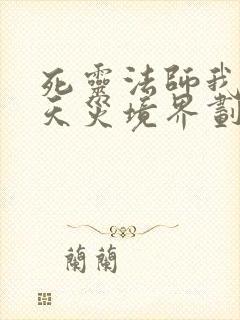 死靈法師我
天災境界劃
蘭蘭